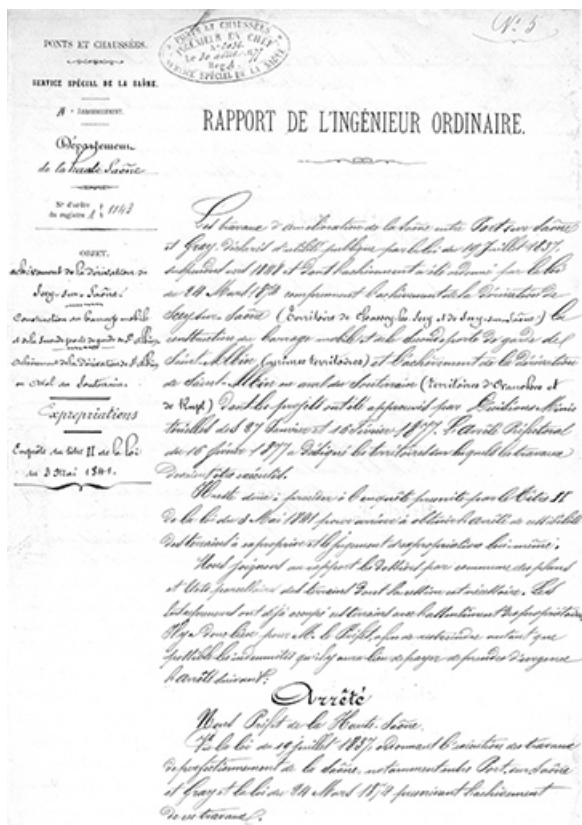 N° 5
PONTS ET CHAUSSÉES
INGÉNIEUR EN CHEF
SERVICE SPÉCIAL DE LA SAÔNE
PONTS ET CHAUSSÉES.
SERVICE SPÉCIAL DE LA SAÔNE.
ARRONDISSEMENT.
Département
de la Haute Saône
N° d'ordre
du registre A 1143
OBJET.
achèvement de la dérivation de
Scey-sur-Saône.
Construction du barrage mobile
et de la seconde porte de garde de St Albin
achèvement de la dérivation de St Albin
en aval du Souterrain.
Expropriations
Enquête du titre II de la loi
du 3 Mai 1841.
RAPPORT DE L'INGÉNIEUR ORDINAIRE.
Les travaux d'amélioration de la Saône entre Port-sur-Saône
et Gray, déclarés d'utilité publique par la loi du 19 Juillet 1837,
suspendus vers 1848 et dont l'achèvement a été ordonné par la loi
du 24 Mars 1874 comprennent l'achèvement de la dérivation de
Scey-sur-Saône (Territoires de Chassey-lès-Scey et de Scey-sur-Saône) la
construction du barrage mobile et de la seconde porte de garde de
Saint-Albin (mêmes territoires) et l'achèvement de la dérivation
de Saint-Albin en aval du souterrain (Territoires d'Ovanches et
de Rupt) dont les projets ont été approuvés par Décisions Minis
térielles des 27 Janvier et 16 Février 1877. L'arrêté Préfectoral
du 16 février 1877 a désigné les territoires sur lesquels les travaux
devaient être exécutés.
Il reste donc à procéder à l'enquête prescrite par le titre II
de la loi du 3 Mai 1841 pour arriver à obtenir l'arrêté de cessibilité
des terrains à exproprier et le jugement d'expropriation lui-même.
Nous joignons au rapport les dossiers par commune des plans
et états parcellaires des terrains dont la cession est nécessaire. Les
Entrepreneurs ont déjà occupé ces terrains avec l'assentiment des propriétaires
Il y a donc lieu, pour M. le Préfet, afin de restreindre autant que
possible les indemnités qu'il y aura lieu de payer de prendre d'urgence
l'arrêté suivant:
Arrêté
Nous Préfet de la Haute Saône,
Vu la loi du 19 juillet 1837, ordonnant l'exécution des travaux
de perfectionnement de la Saône, notamment entre Port-sur-Saône
et Gray et la loi du 24 Mars 1874 prescrivant l'achèvement
de ces travaux.